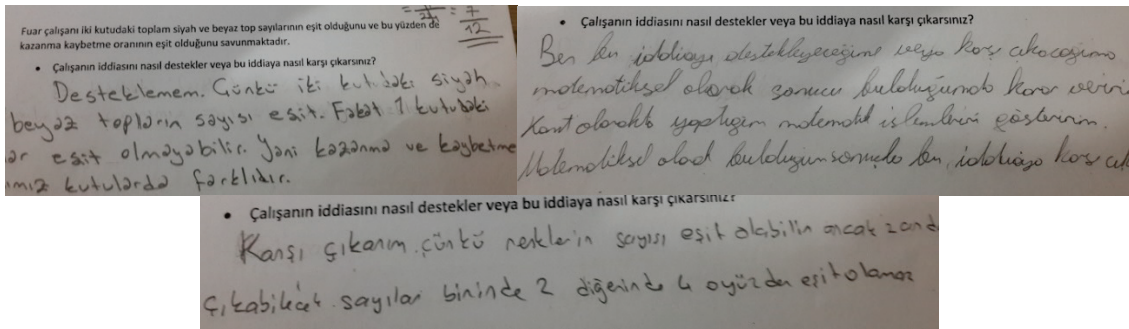 7
12
Fuar çalışanı iki kutudaki toplam siyah ve beyaz top sayılarının eşit olduğunu ve bu yüzden de
kazanma kaybetme oranının eşit olduğunu savunmaktadır.
• Çalışanın iddiasını nasıl destekler veya bu iddiaya nasıl karşı çıkarsınız?
Desteklemem. Çünkü iki kutudaki siyah
beyaz topların sayısı eşit. Fakat 1 kutudaki
eşit olmayabilir. Yani kazanma ve kaybetme
kutularda farklıdır.
• Çalışanın iddiasını nasıl destekler veya bu iddiaya nasıl karşı çıkarsınız?
Ben bu iddiayı destekleyeceğime veya karşı çıkacağıma
matematiksel olarak sonucu bulduğumda karar veri
Kanıt olarakta yaptığım matematik işlemlerini gösteririm.
Matematiksel olarak bulduğum sonuçla ben, iddiaya karşı çık
• Çalışanın iddiasını nasıl destekler veya bu iddiaya nasıl karşı çıkarsınız?
Karşı çıkarım. çünkü renklerin sayısı eşit olabilir ancak
çıkabilecek sayılar birinde 2 diğerinde 4 oyüzden eşit olamaz